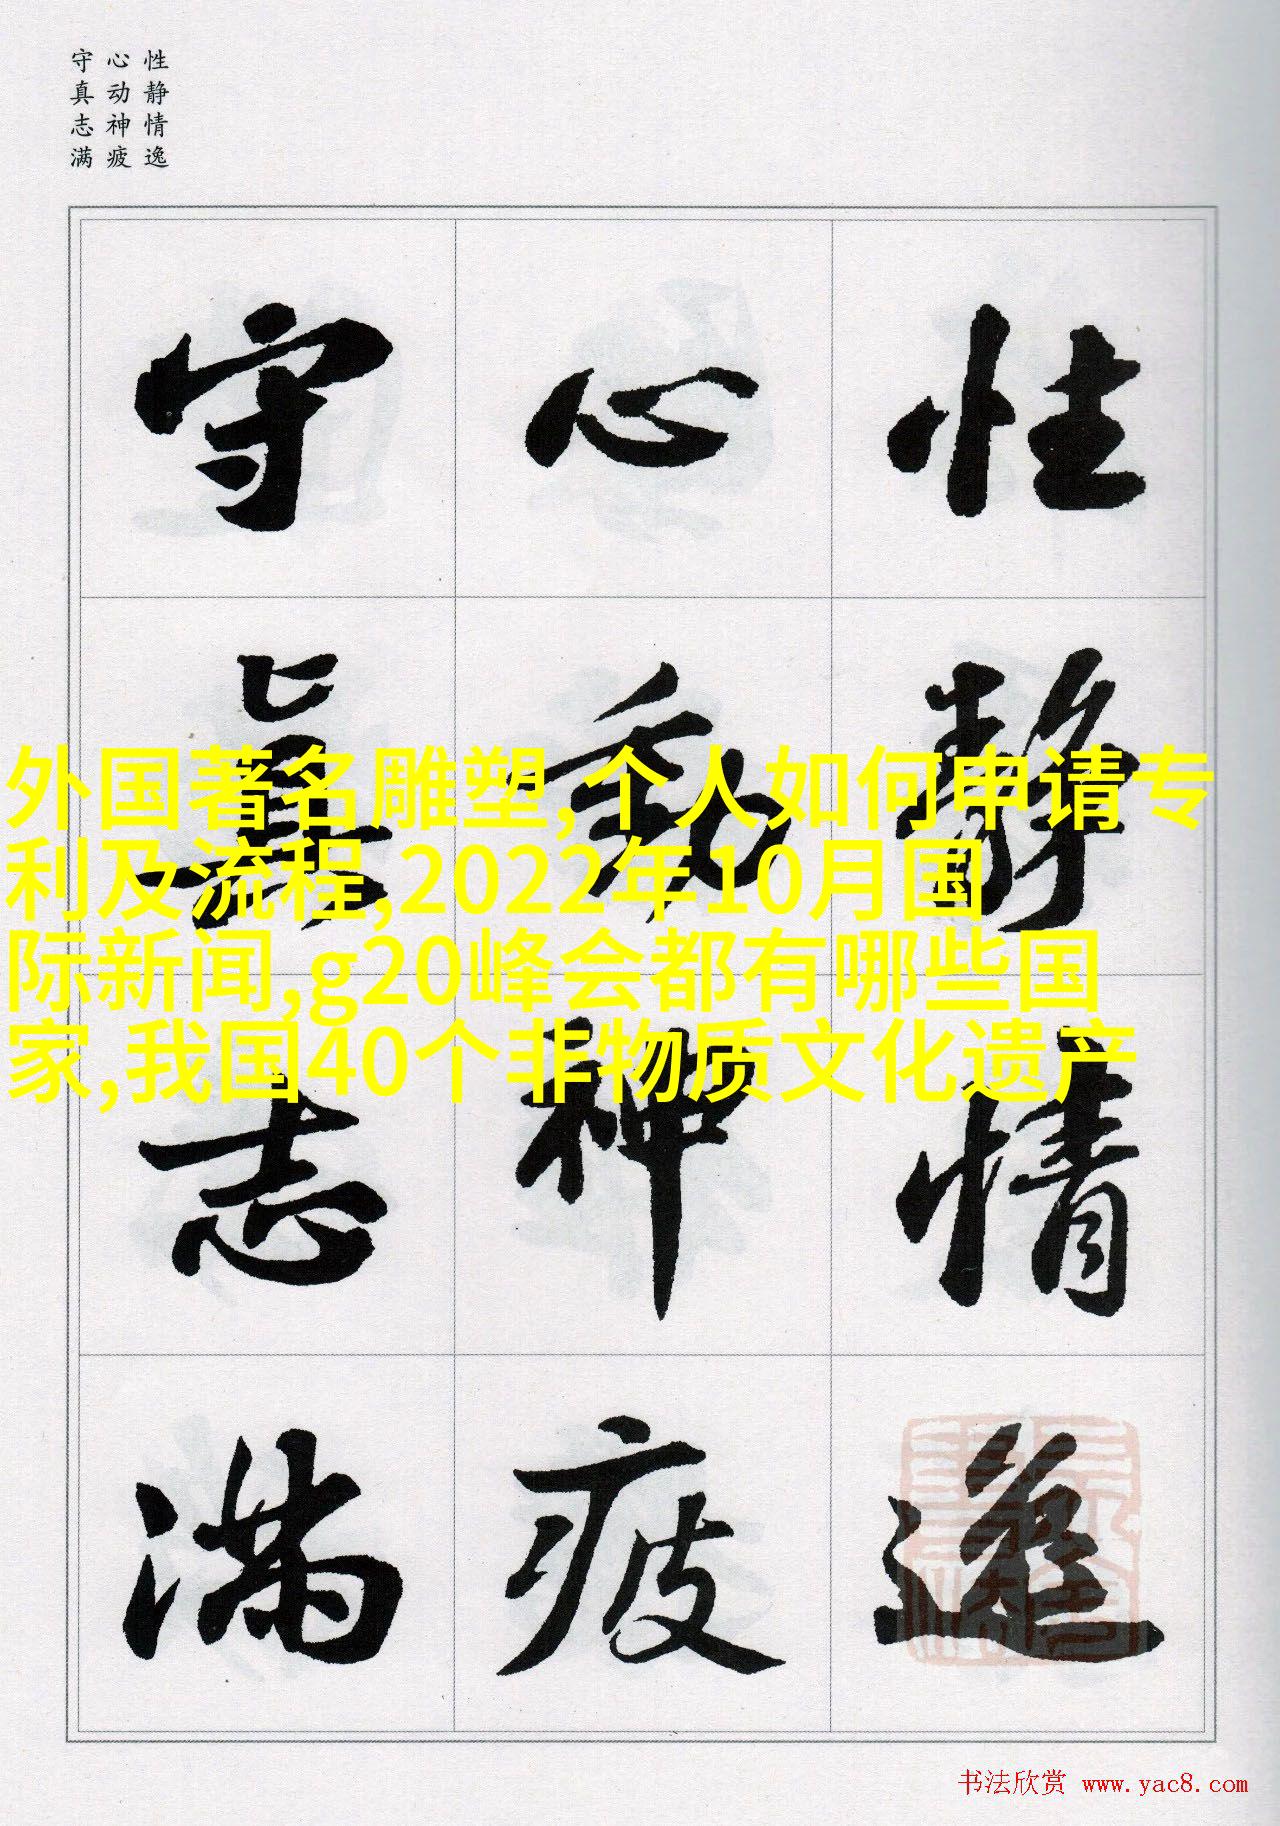 性静情逸
心动神疲
守真志满
性靜情逸
心動神疲
守真志满
外国著名雕塑,个人如何申请专
利及流程,2022年10月国
际新闻,g20峰会都有哪些国
家,我国40个非物质文化遗产
书法欣赏 www.yac8.com